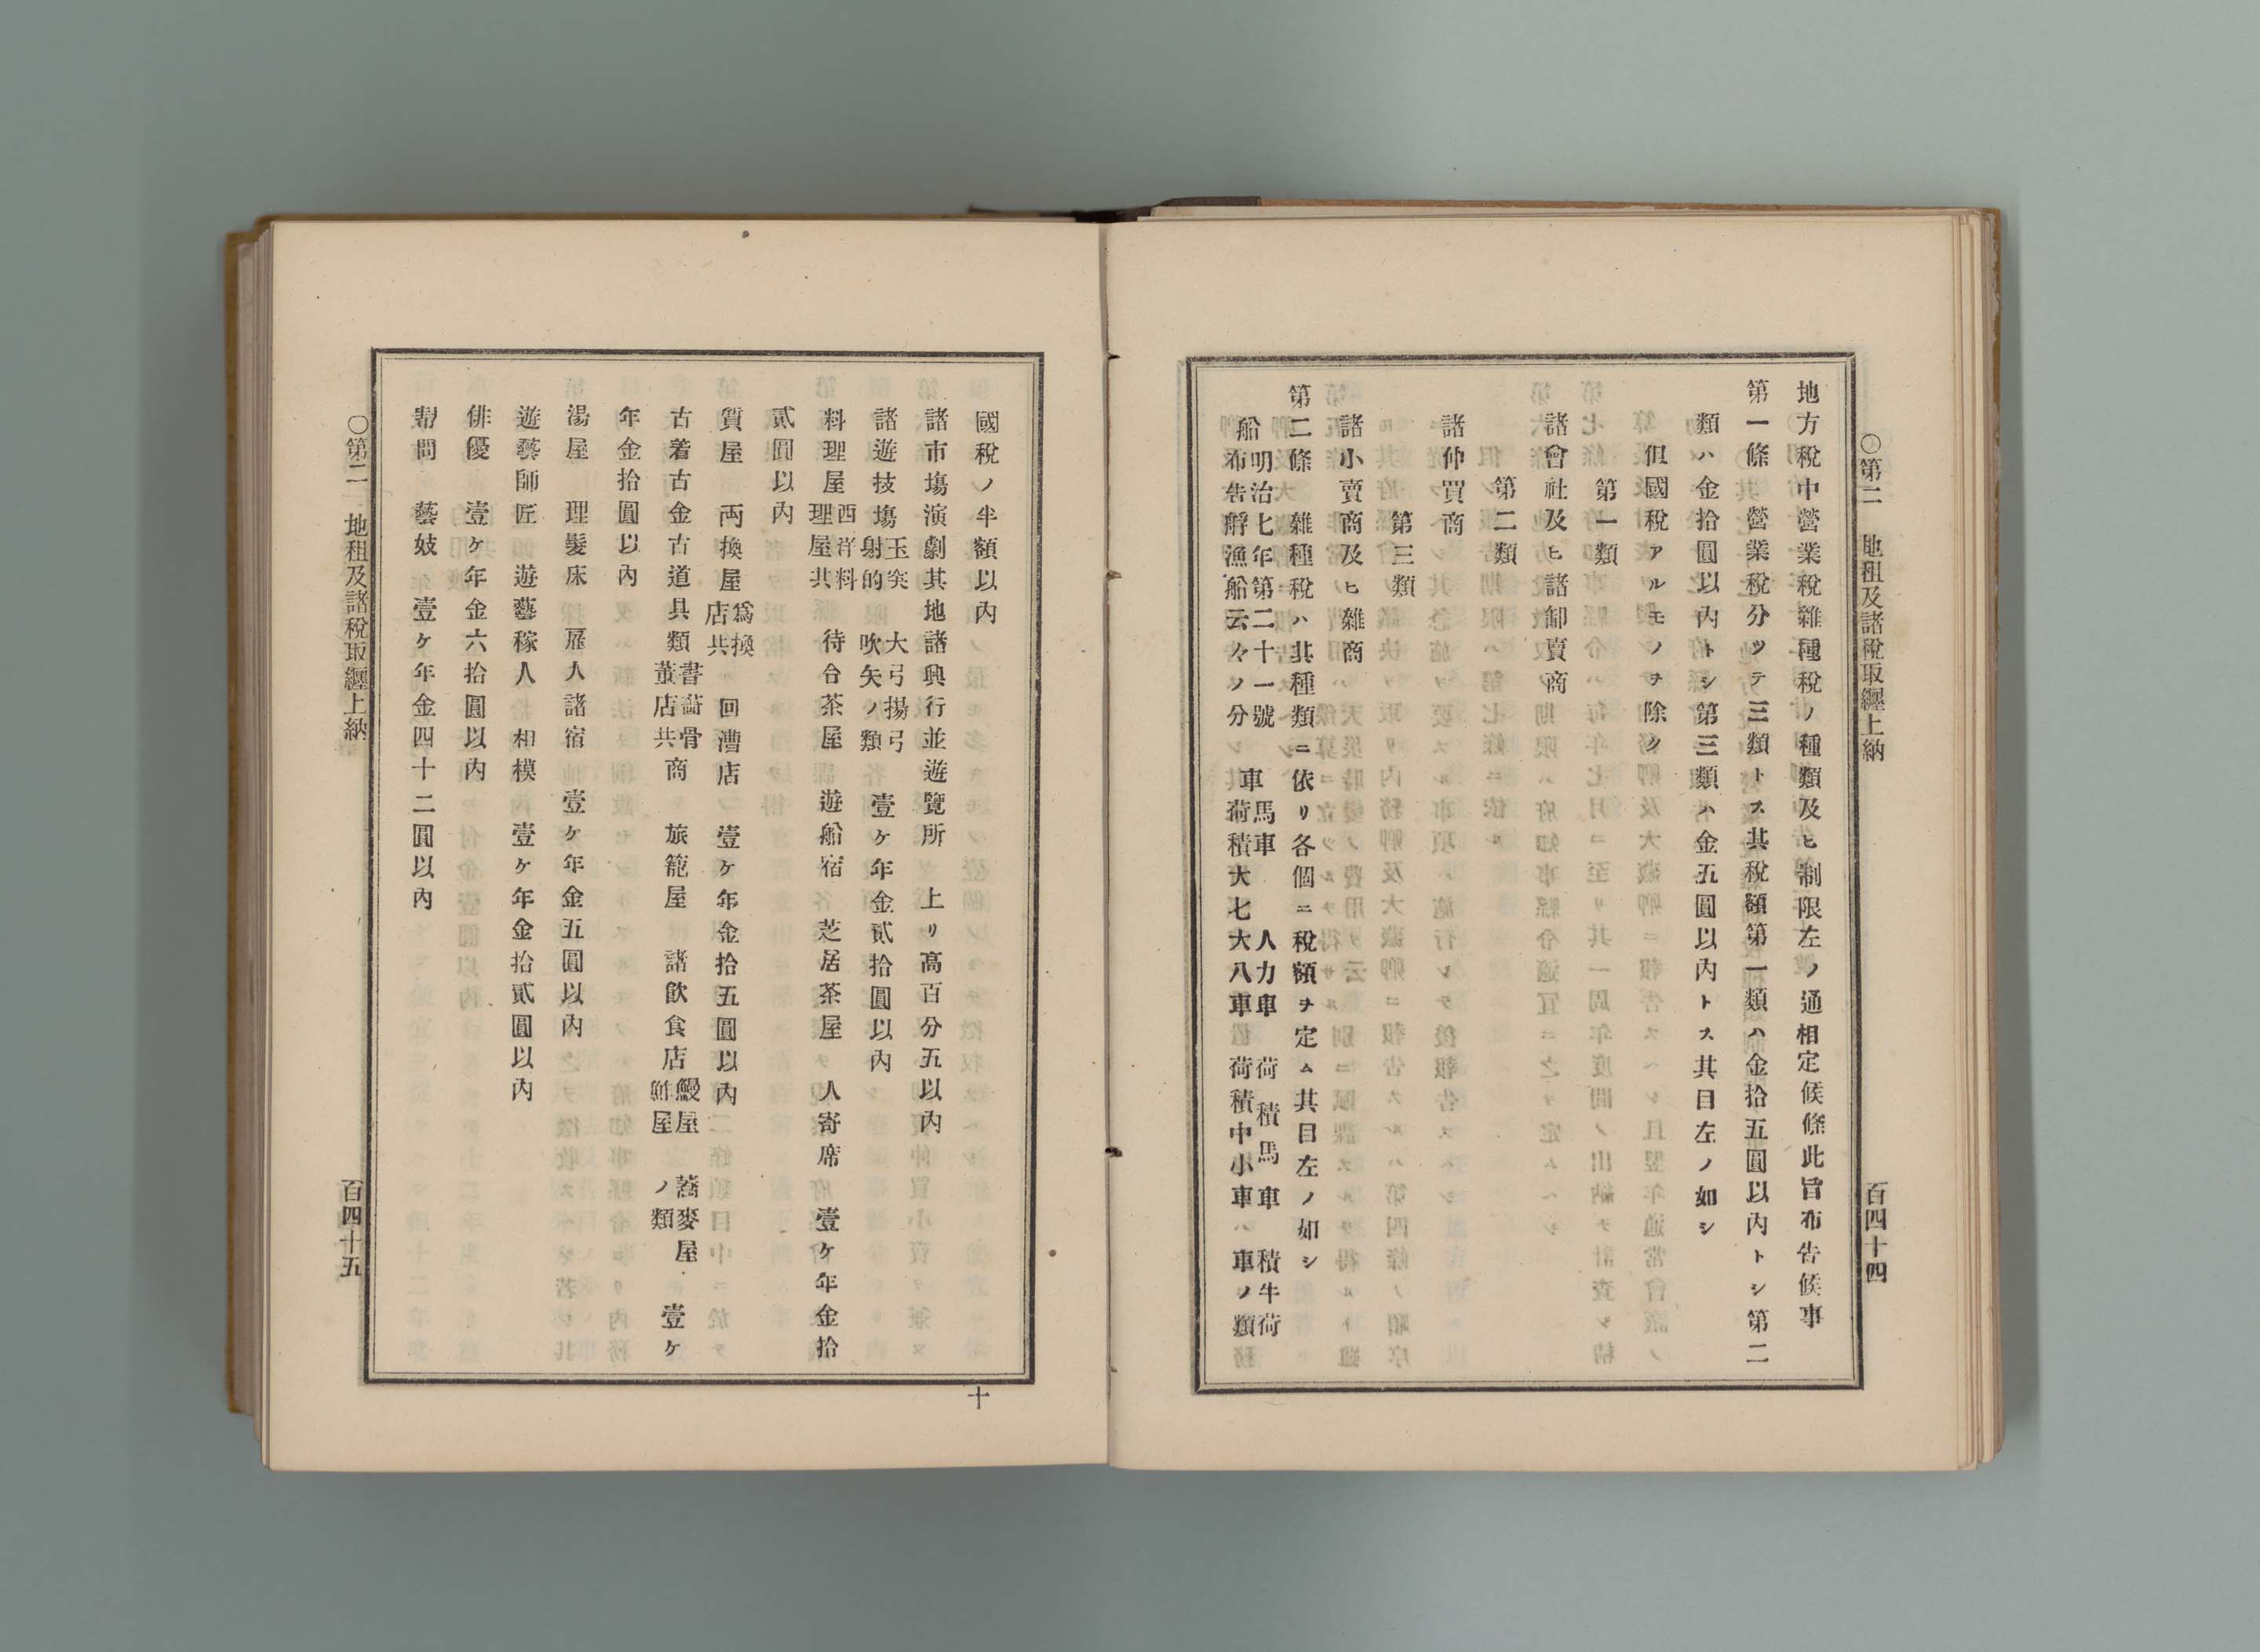 〇第二　地租及諸稅取纒上納　百四十四
地方稅中營業稅雜種稅ノ種類及ヒ制限左ノ通相定候條此旨布告候事
第一條營業稅分ツテ三類トス其稅額第一類ハ金拾五圓以內トシ第二
類ハ金拾圓以內トシ第三類ハ金五圓以內トス其目左ノ如シ
但國稅アルモノヲ除ク
第一類
諸會社及ヒ諸卸賣商
第二類
諸仲買商
第三類
諸小賣商及ヒ雜商
第二條雜種稅ハ其種類ニ依リ各個ニ稅額ヲ定ム其目左ノ如シ
船明治七年第二十一號布告艀漁船云々ノ分　車馬車　人力車　荷積馬車　積牛荷荷積大七大八車　荷積中小車　車ノ類
國稅ノ半額以內
諸市塲演劇其地諸興行並遊覽所　上リ高百分五以內
諸遊技塲玉突　大弓揚弓射的　吹矢ノ類　壹ケ年金貳拾圓以內
料理屋西洋料理屋共　待合茶屋　遊船宿　芝居茶屋　人寄席　壹ケ年金拾
貳圓以內
質屋　両換屋爲換店共　回漕店　壹ケ年金拾五圓以內
古着古金古道具類書畵骨董店共商　旅籠屋　諸飮食店鰻屋　蕎麥屋鮓屋　ノ類　壹ケ
年金拾圓以內
湯屋　理髮床　雇人諸宿　壹ケ年金五圓以內
遊藝師匠　遊藝稼人　相模　壹ケ年金拾貳圓以內
俳優　壹ケ年金六拾圓以內
幇間　藝妓　壹ケ年金四十二圓以內
〇第二　地租及諸稅取纒上納　百四十五
十